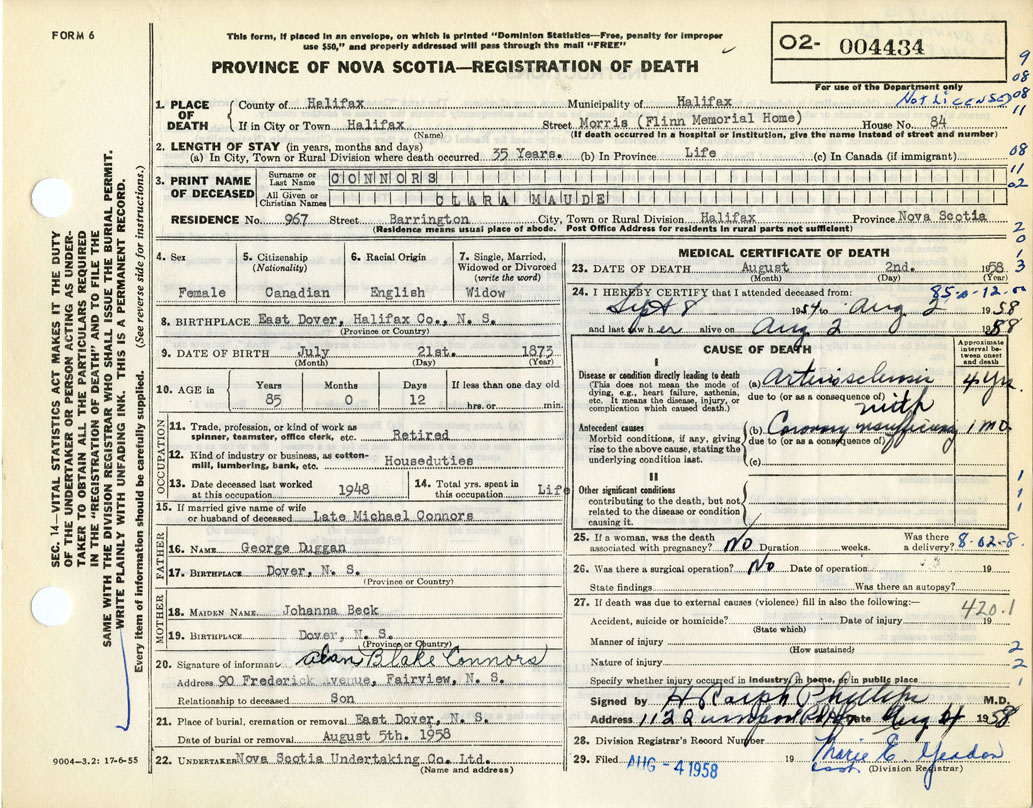 FORM 6
This form, if placed in an envelope, on which is printed "Dominion Statistics—Free, penalty for improper
use $50," and properly addressed will pass through the mail "FREE"
PROVINCE OF NOVA SCOTIA—REGISTRATION OF DEATH
02- 004434
For use of the Department only
Not Licensed
1. PLACE OF DEATH County of Halifax Municipality of Halifax
If in City or Town Halifax Street Morris (Flinn Memorial Home) House No. 84
(Name) (If death occurred in a hospital or institution, give the name instead of street and number)
2. LENGTH OF STAY (in years, months and days)
(a) In City, Town or Rural Division where death occurred 35 Years. (b) In Province Life (c) In Canada (if immigrant)
3. PRINT NAME OF DECEASED Surname or Last Name CONNORS
All Given or Christian Names CLARA MAUDE
RESIDENCE No. 967 Street Barrington City, Town or Rural Division Halifax Province Nova Scotia
(Residence means usual place of abode. Post Office Address for residents in rural parts not sufficient)
4. Sex 5. Citizenship (Nationality) 6. Racial Origin 7. Single, Married, Widowed or Divorced (write the word)
Female Canadian English Widow
8. BIRTHPLACE East Dover, Halifax Co., N. S.
(Province or Country)
9. DATE OF BIRTH July 21st. 1873
(Month) (Day) (Year)
10. AGE in Years Months Days If less than one day old
85 0 12 hrs. or min.
OCCUPATION
11. Trade, profession, or kind of work as spinner, teamster, office clerk, etc. Retired
12. Kind of industry or business, as cotton-mill, lumbering, bank, etc. Houseduties
13. Date deceased last worked at this occupation 1948 14. Total yrs. spent in this occupation Life
15. If married give name of wife or husband of deceased Late Michael Connors
FATHER
16. NAME George Duggan
17. BIRTHPLACE Dover, N. S.
(Province or Country)
MOTHER
18. MAIDEN NAME Johanna Beck
19. BIRTHPLACE Dover, N. S.
(Province or Country)
20. Signature of informant Alan Blake Connors
Address 90 Frederick Avenue, Fairview, N. S.
Relationship to deceased Son
21. Place of burial, cremation or removal East Dover, N. S.
Date of burial or removal August 5th. 1958
22. UNDERTAKER Nova Scotia Undertaking Co. Ltd.
(Name and address)
MEDICAL CERTIFICATE OF DEATH
23. DATE OF DEATH August 2nd. 1958
(Month) (Day) (Year)
85-0-12
24. I HEREBY CERTIFY that I attended deceased from:
Sept 8 1954 to Aug 2 1958
and last saw her alive on Aug 2 1958
CAUSE OF DEATH
Approximate interval between onset and death
I
Disease or condition directly leading to death
(This does not mean the mode of dying, e.g., heart failure, asthenia, etc. It means the disease, injury, or complication which caused death.)
(a) Arteriosclerosis 4 yrs.
due to (or as a consequence of) with
Antecedent causes
Morbid conditions, if any, giving rise to the above cause, stating the underlying condition last.
(b) Coronary insufficiency 1 mo.
due to (or as a consequence of)
(c)
II
Other significant conditions
contributing to the death, but not related to the disease or condition causing it.
25. If a woman, was the death associated with pregnancy? No Duration weeks. Was there a delivery?
8-02-8.
26. Was there a surgical operation? No Date of operation 19
State findings Was there an autopsy?
27. If death was due to external causes (violence) fill in also the following:—
420.1
Accident, suicide or homicide? Date of injury 19
(State which)
Manner of injury
(How sustained)
Nature of injury
Specify whether injury occurred in industry, in home, or in public place
Signed by H Ralph Phillips M.D.
Address 112 Quinpool Rd Date Aug 4 1958
28. Division Registrar's Record Number
29. Filed AUG - 4 1958 19 Marie E. Yeadon
(Division Registrar)
SEC. 14—VITAL STATISTICS ACT MAKES IT THE DUTY
OF THE UNDERTAKER OR PERSON ACTING AS UNDER-
TAKER TO OBTAIN ALL THE PARTICULARS REQUIRED
IN THE "REGISTRATION OF DEATH" AND TO FILE THE
SAME WITH THE DIVISION REGISTRAR WHO SHALL ISSUE THE BURIAL PERMIT.
WRITE PLAINLY WITH UNFADING INK. THIS IS A PERMANENT RECORD.
Every item of information should be carefully supplied. (See reverse side for instructions.)
9004—3.2: 17-6-55
9
08
08
11
08
11
02
2
0
1
3
1
1
1
2
2
1